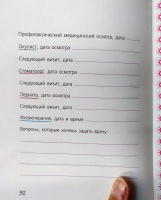 Профилактический медицинский осмотр, дата
Окулист, дата осмотра
Следующий визит, дата
Стоматолог, дата осмотра
Следующий визит, дата
Педиатр, дата осмотра
Следующий визит, дата
Физиотерапия, дата и время
Вопросы, которые хочешь задать врачу
50